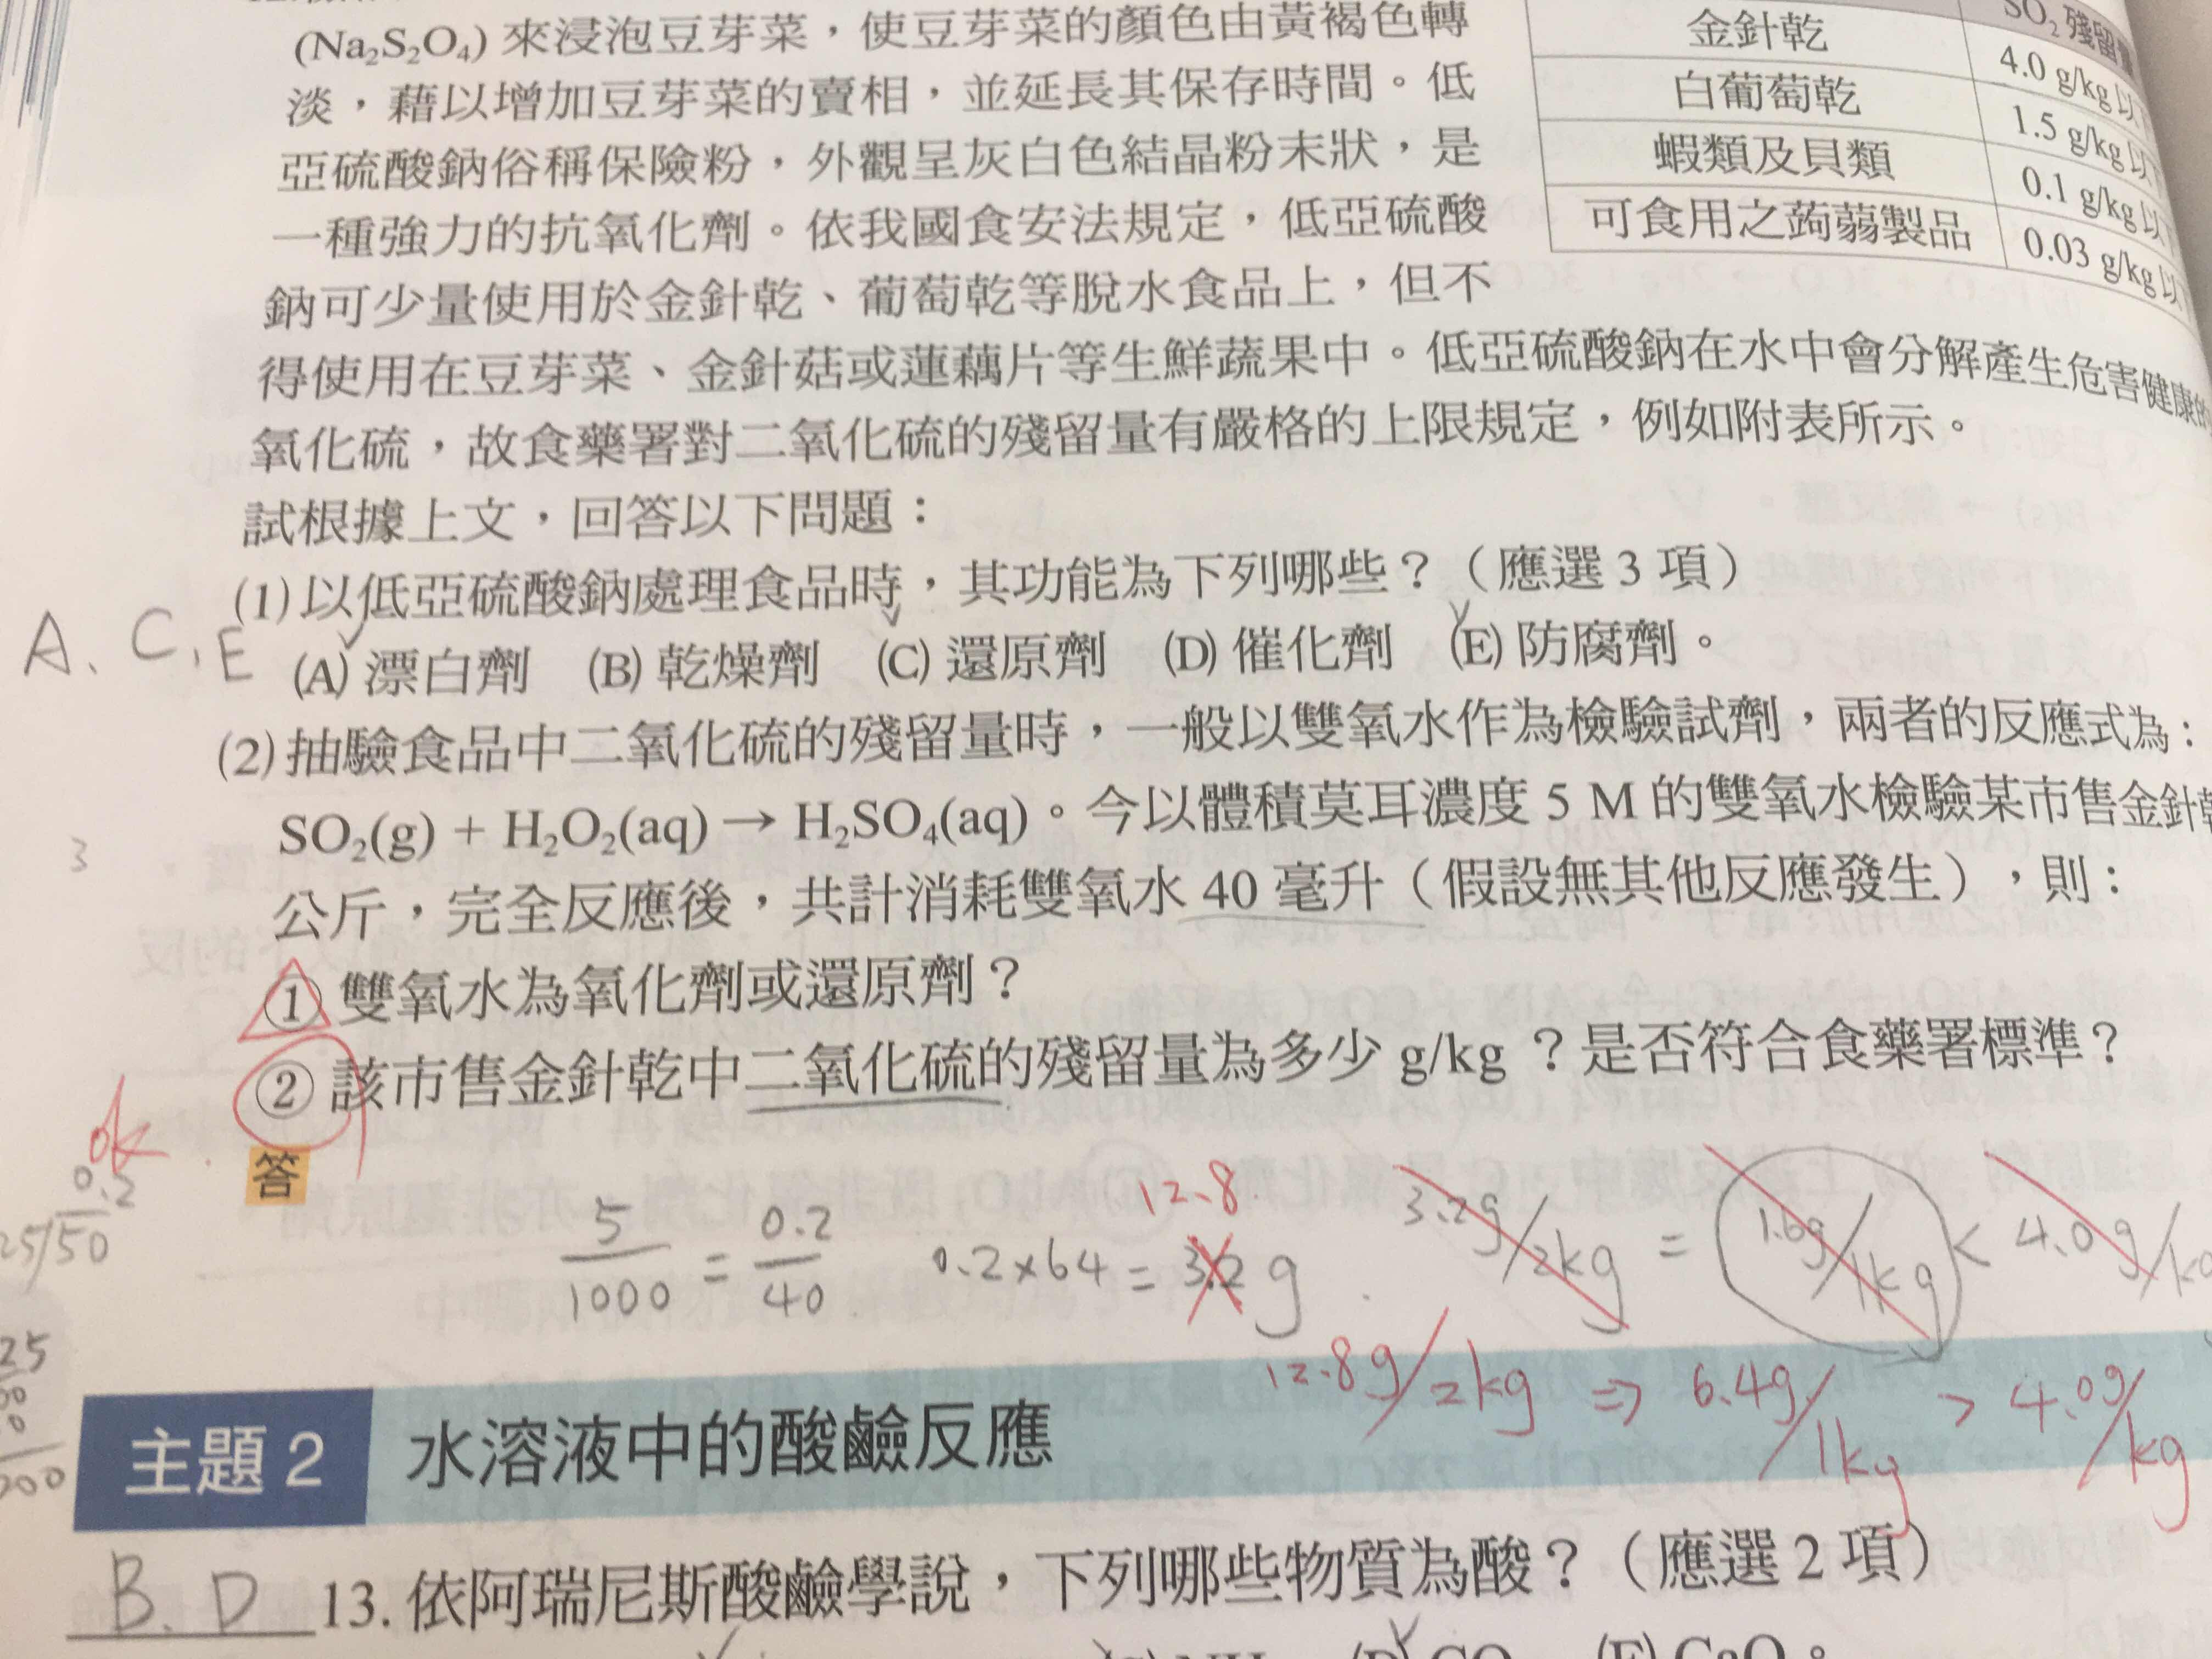 (Na₂S₂O₄) 來浸泡豆芽菜，使豆芽菜的顏色由黃褐色轉
淡，藉以增加豆芽菜的賣相，並延長其保存時間。低
亞硫酸鈉俗稱保險粉，外觀呈灰白色結晶粉末狀，是
一種強力的抗氧化劑。依我國食安法規定，低亞硫酸
鈉可少量使用於金針乾、葡萄乾等脫水食品上，但不
得使用在豆芽菜、金針菇或蓮藕片等生鮮蔬果中。低亞硫酸鈉在水中會分解產生危害健康的
氧化硫，故食藥署對二氧化硫的殘留量有嚴格的上限規定，例如附表所示。
SO₂ 殘留
金針乾 4.0 g/kg 以
白葡萄乾 1.5 g/kg 以
蝦類及貝類 0.1 g/kg 以
可食用之蒟蒻製品 0.03 g/kg 以
試根據上文，回答以下問題：
A、C、E
(1) 以低亞硫酸鈉處理食品時，其功能為下列哪些？（應選 3 項）
(A) 漂白劑 (B) 乾燥劑 (C) 還原劑 (D) 催化劑 (E) 防腐劑。
(2) 抽驗食品中二氧化硫的殘留量時，一般以雙氧水作為檢驗試劑，兩者的反應式為：
SO₂(g) + H₂O₂(aq) → H₂SO₄(aq)。今以體積莫耳濃度 5 M 的雙氧水檢驗某市售金針
3
公斤，完全反應後，共計消耗雙氧水 40 毫升（假設無其他反應發生），則：
① 雙氧水為氧化劑或還原劑？
② 該市售金針乾中二氧化硫的殘留量為多少 g/kg ？是否符合食藥署標準？
ok
答
0.2
25/50
5/1000 = 0.2/40
0.2×64 = 3.2 g
12.8
3.2g/2kg = 1.6g/1kg < 4.0g/kg
12.8g/2kg ⇒ 6.4g/1kg > 4.0g/kg
25
主題 2 水溶液中的酸鹼反應
B、D 13. 依阿瑞尼斯酸鹼學說，下列哪些物質為酸？（應選 2 項）